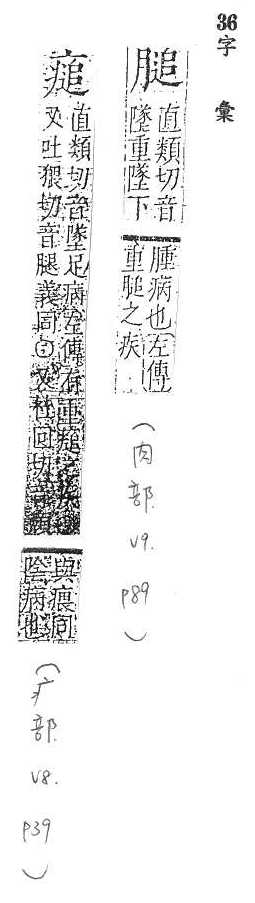 36 字彙
膇
直類切音
墜重墜下
腫病也左傳
重膇之疾
(肉部 v9. p89)
㾽
直類切音墜足病左傳有重㾽之疾
又吐猥切音腿義同〇又杜回切音頹
與同
陰病也
(疒部 v8. p39)